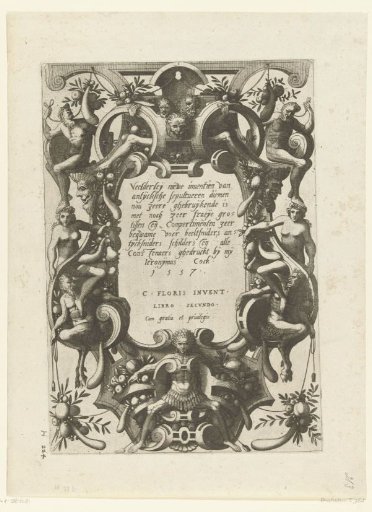 Veelderley niewe inventien van
antycksche sepultueren diemen
nou zeere ghebruykende is
met noch zeer fraeye gro-
tissen en Compertimenten zeer
beqwame voer beeltsniders an-
tycksniders schilders en alle
Constenaers ghedruckt by my
Ieronymus Cock
1557.
C · FLORIS INVENT·
LIBRO · SECVNDO·
Cum gratia et privilegio